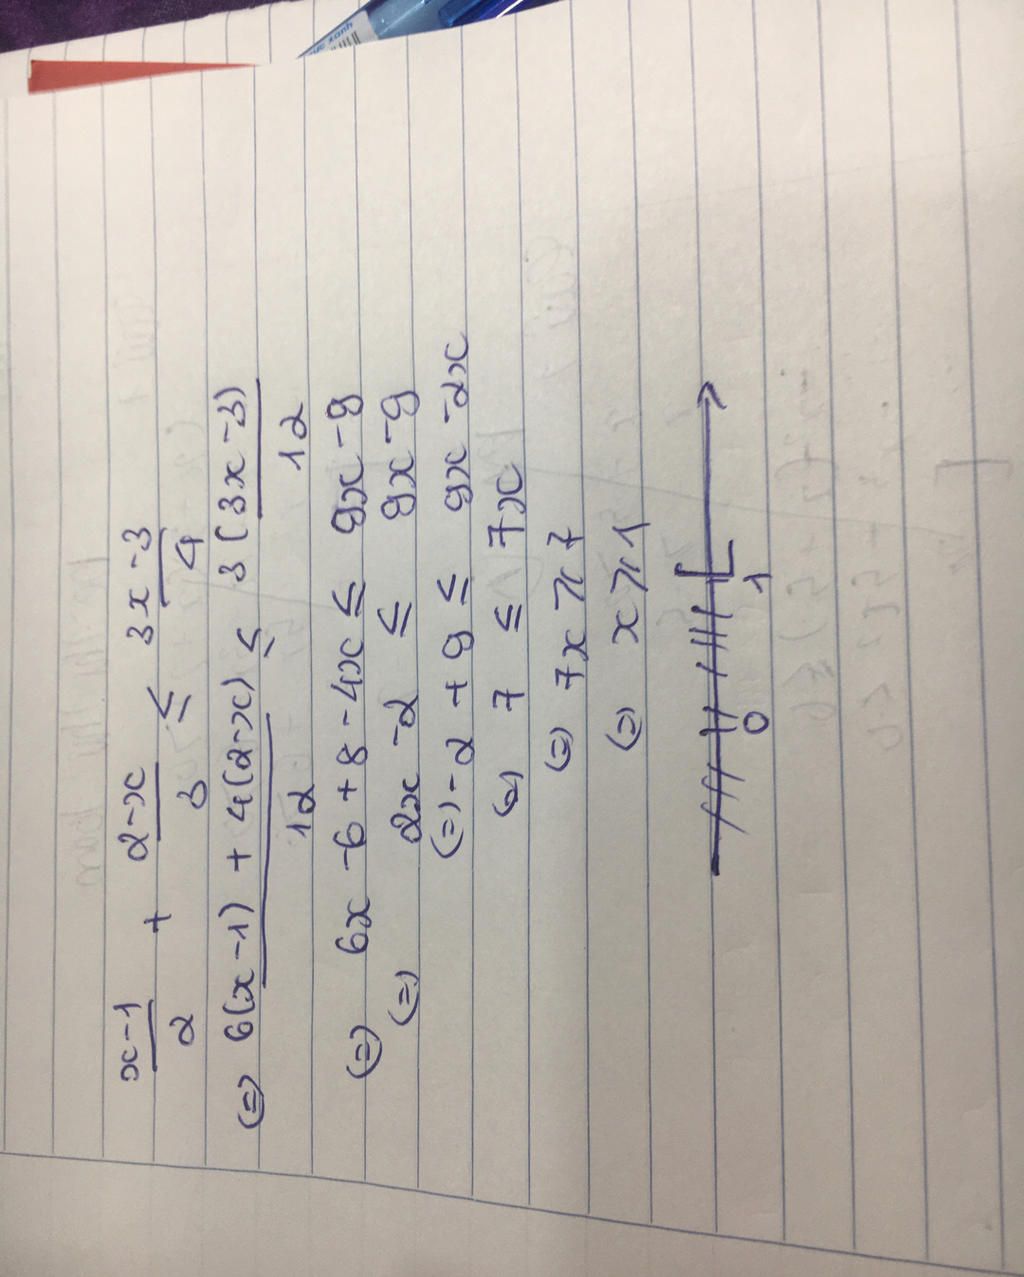 x-1 + 2-x ≤ 3x-3
2 3 4
(=) 6(x-1) + 4(2-x) ≤ 3(3x-3)
12 12
(=) 6x-6+8-4x ≤ 9x-9
(=) 2x-2 ≤ 9x-9
(=) -2+9 ≤ 9x-2x
(=) 7 ≤ 7x
(=) 7x ≥ 7
(=) x ≥ 1
0 [ 1
xanh